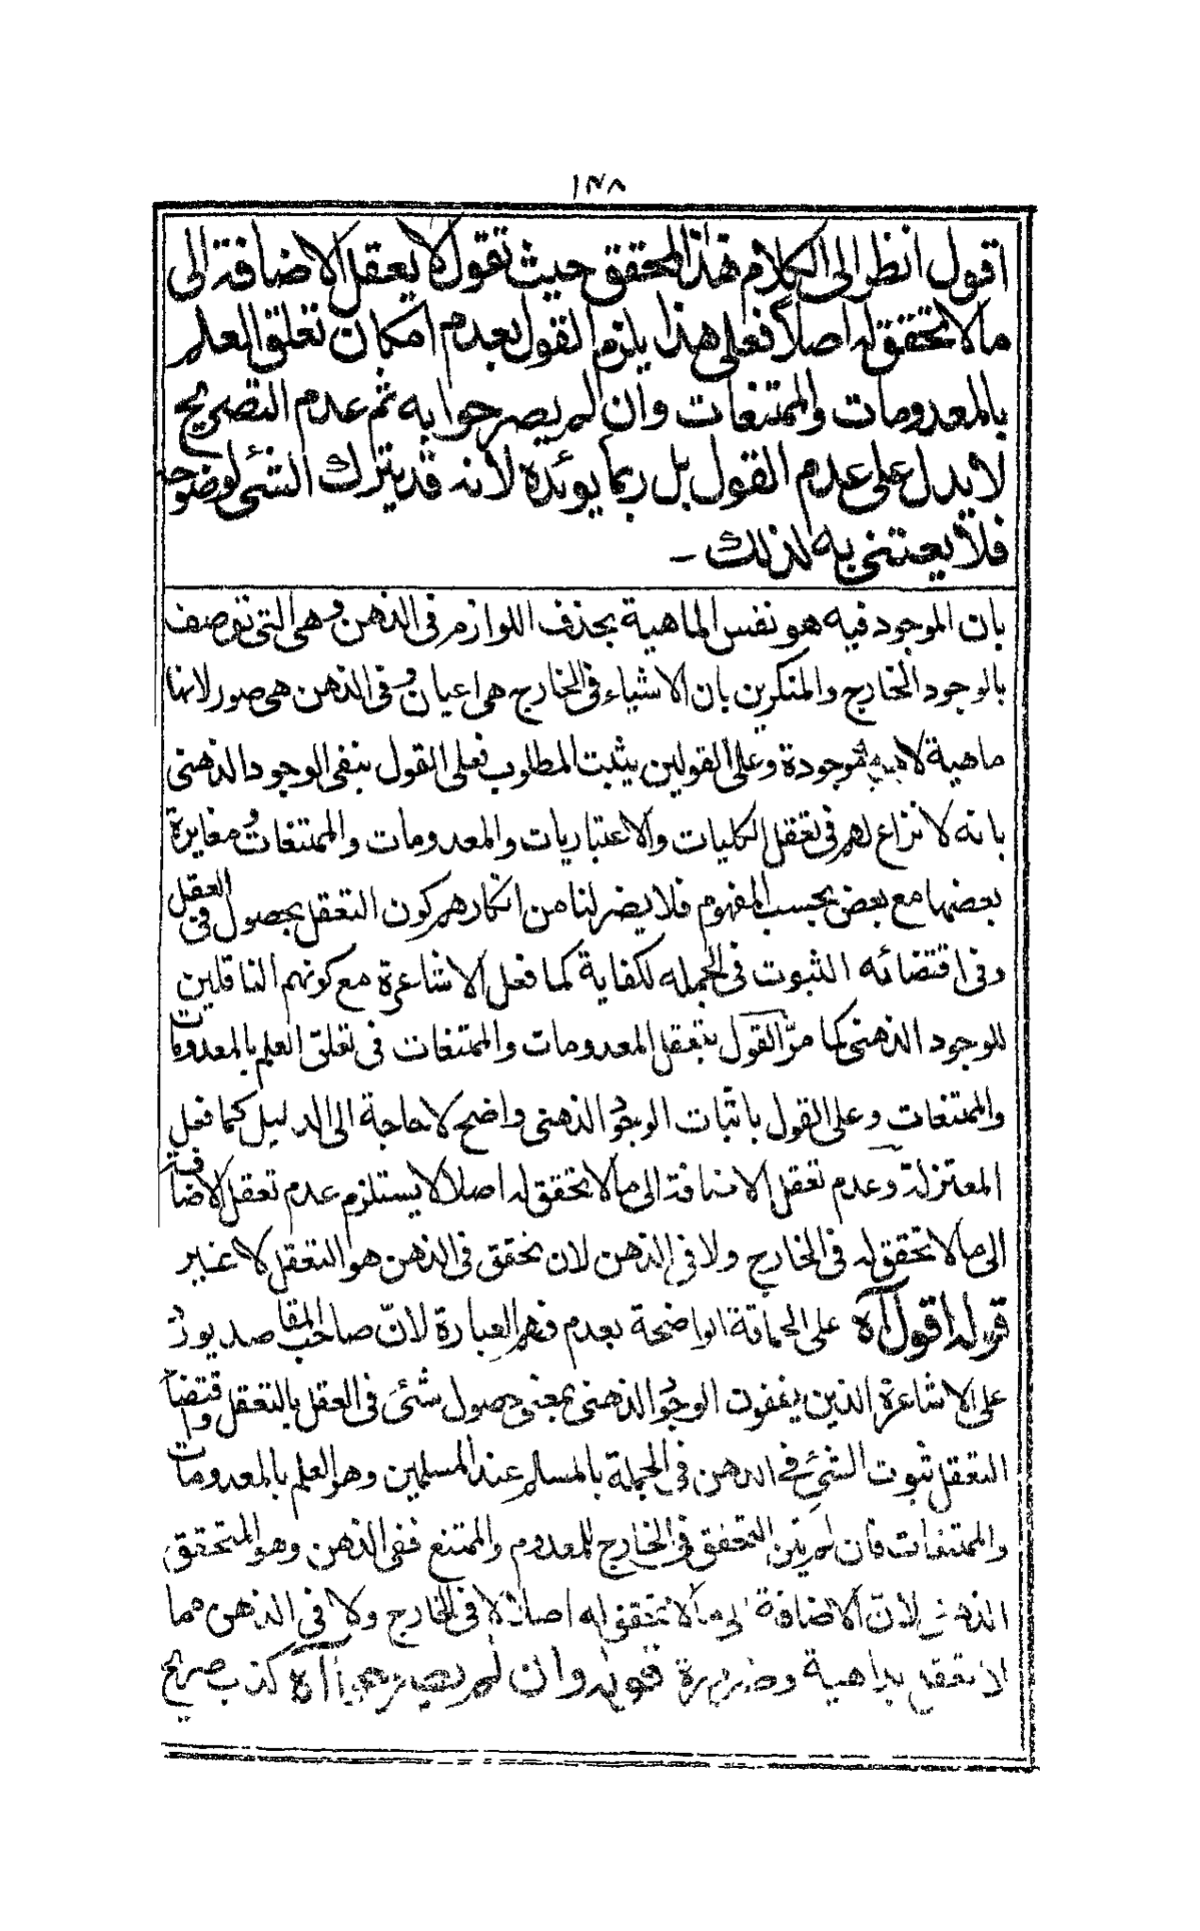 ١٣٨
اقول انظر الى الكلام هذا المحقق حيث تقول لا يعقل الاضافة الى
مالا تحقق له اصلاً فعلى هذا يلزم القول بعدم امكان تعلق العلم
بالمعدومات والممتنعات وان لم يصرحوا به ثم عدم التصريح
لا يدل على عدم القول بل ربما يوئده لانه قد يترك الشئى لوضوحه
فلا يعتنى به لذلك ـ
بان الموجود فيه هو نفس الماهية بحذف اللوازم فى الذهن وهى التى توصف
بالوجود الخارج والمنكرين بان الاشياء فى الخارج هى اعيان وفى الذهن هى صور لانها
ماهية لا موجودة وعلى القولين يثبت المطلوب فعلى القول بنفى الوجود الذهنى
بانه لا نزاع لهم فى تعقل الكليات والاعتباريات والمعدومات والممتنعات ومغايرة
بعضها مع بعض بحسب المفهوم فلا يضر لنا من انكارهم كون التعقل بحصول فى العقل
وفى اقتضائه الثبوت فى الجمله لكفاية كما فعل الاشاعرة مع كونهم الناقلين
للوجود الذهنى كما مرّ القول بتعقل المعدومات والممتنعات فى تعلق العلم بالمعدومات
والممتنعات وعلى القول باثبات الوجود الذهنى واضح لا حاجة الى الدليل كما فعل
المعتزلة وعدم تعقل الاضافة الى مالا تحقق له اصلا لا يستلزم عدم تعقل الاضافة
الى مالا تحقق له فى الخارج ولا فى الذهن لان تحقق فى الذهن هو التعقل لا غير
قوله اقول آه على الحماقة الواضحة بعدم فهم العبارة لانّ صاحب المقاصد يورد
على الاشاعرة الذين ينفون الوجود الذهنى بمعنى حصول شئى فى العقل بالتعقل واقتضاء
التعقل ثبوت الشئى فى الذهن فى الجملة بالمسلم عند المسلمين وهو العلم بالمعدومات
والممتنعات فان لم يكن التحقق فى الخارج للمعدوم والممتنع ففى الذهن وهو المتحقق
الذهنى لانّ الاضافة الى مالا تحقق له اصلا لا فى الخارج ولا فى الذهن مما
لا تعقل بداهية وضرورة قوله وان لم يصرحوا آه كذب صريح